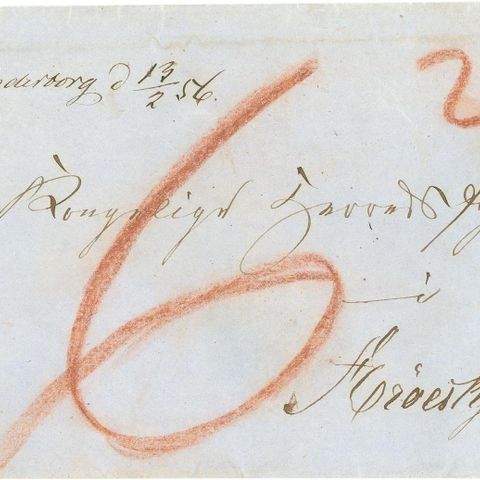 nderborg d 13/2 56. 2
6
Kongelige Herreds
i
Ærøesk